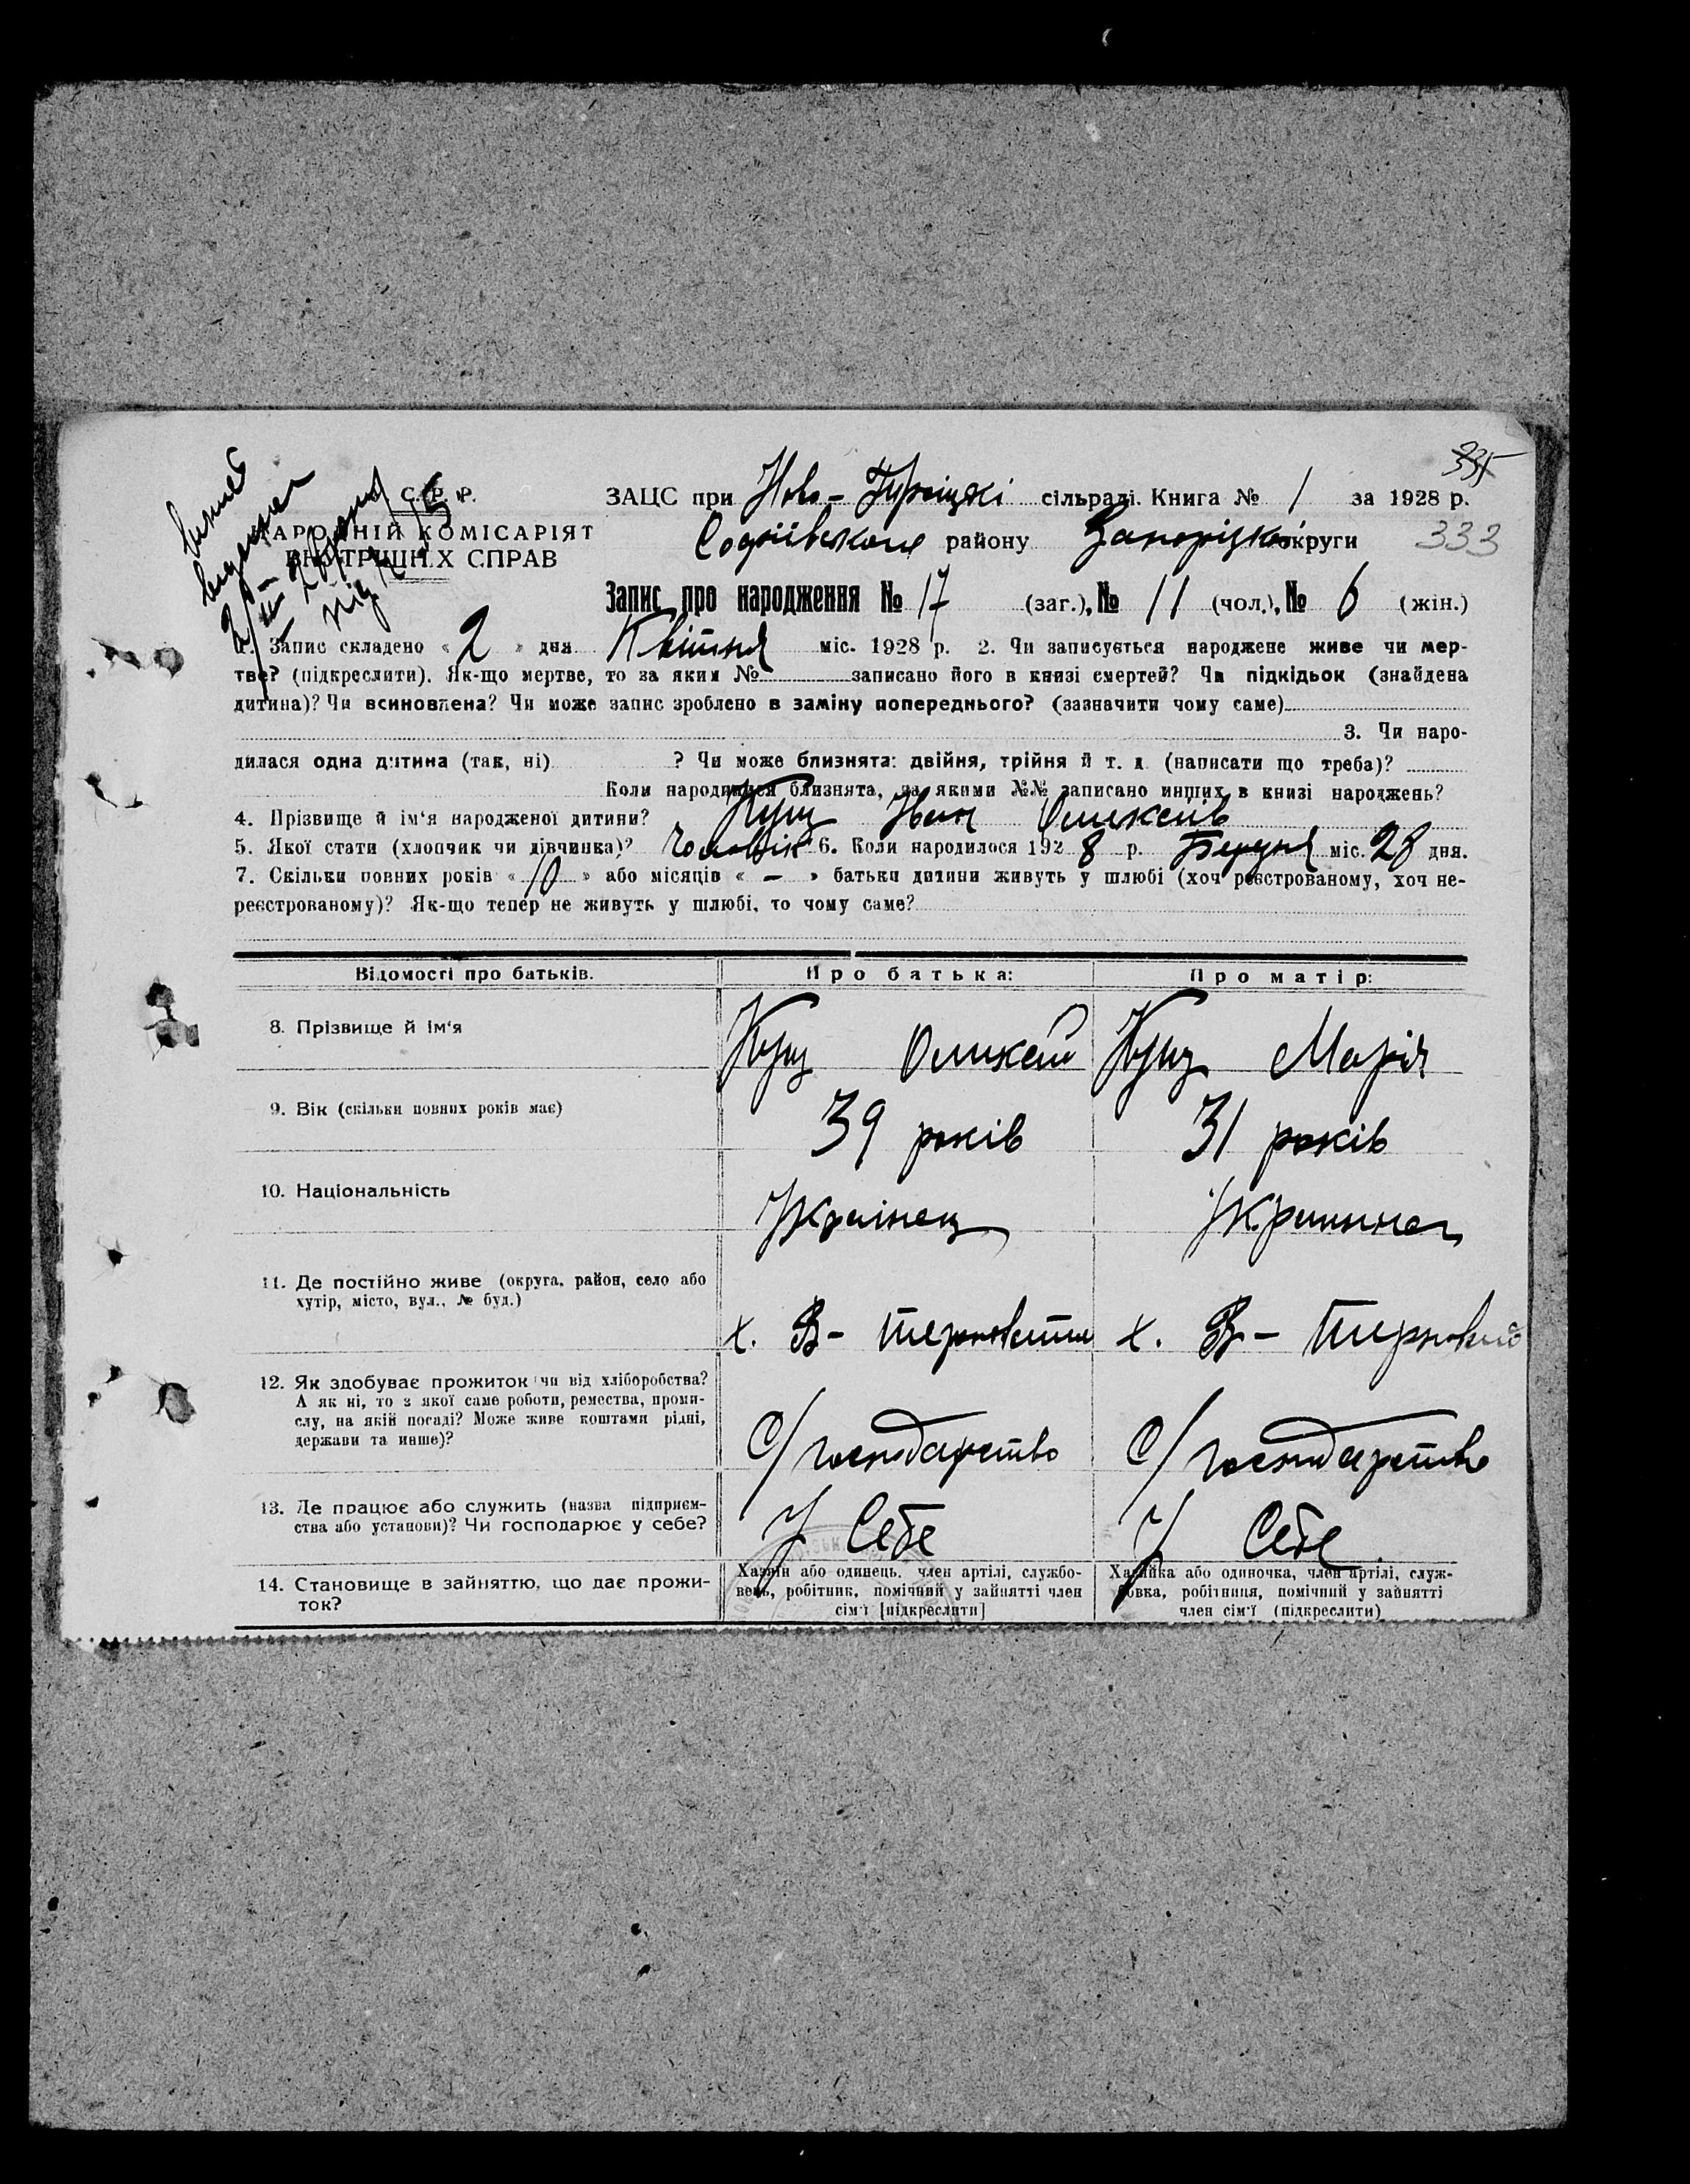 335
333
С. Р. Р.
НАРОДНІЙ КОМІСАРІЯТ
ВНУТРІШН.Х СПРАВ
ЗАЦС при Ново- сільраді. Книга № 1 за 1928 р.
району округи
Запис про народження № 17 (заг.), № 11 (чол.), № 6 (жін.)
1. Запис складено « 2 » дня Квітня міс. 1928 р. 2. Чи записується народжене живе чи мер-
тве? (підкреслити). Як-що мертве, то за яким № записано його в книзі смертей? Чи підкідьок (знайдена
дитина)? Чи всиновлена? Чи може запис зроблено в заміну попереднього? (зазначити чому саме)
3. Чи наро-
дилася одна дитина (так, ні) ? Чи може близнята: двійня, трійня й т. д. (написати що треба)?
Коли народилися близнята, за якими №№ записано инших в книзі народжень?
4. Прізвище й ім‘я народженої дитини? Кущ Іван
5. Якої стати (хлопчик чи дівчинка)? Чоловік 6. Коли народилося 192 8 р. Березня міс. 28 дня.
7. Скільки повних років « 10 » або місяців « – » батьки дитини живуть у шлюбі (хоч реєстрованому, хоч не-
реєстрованому)? Як-що тепер не живуть у шлюбі, то чому саме?
Відомості про батьків. Про батька: Про матір:
8. Прізвище й ім‘я Кущ Кущ Марія
9. Вік (скільки повних років має) 39 років 31 років
10. Національність Українец
11. Де постійно живе (округа, район, село або
хутір, місто, вул., № буд.) х. В- х. В-
12. Як здобуває прожиток чи від хліборобства?
А як ні, то з якої саме роботи, ремества, проми-
слу, на якій посаді? Може живе коштами рідні,
держави та инше)? С/господарство С/господарство
13. Де працює або служить (назва підприєм-
ства або установи)? Чи господарює у себе? У Себе У Себе
14. Становище в зайняттю, що дає прожи-
ток?
Хазяїн або одинець, член артілі, службо-
вець, робітник, помічний у зайнятті член
сім‘ї [підкреслити]
Хазяйка або одиночка, член артілі, служ-
бовка, робітниця, помічний у зайнятті
член сім‘ї (підкреслити)